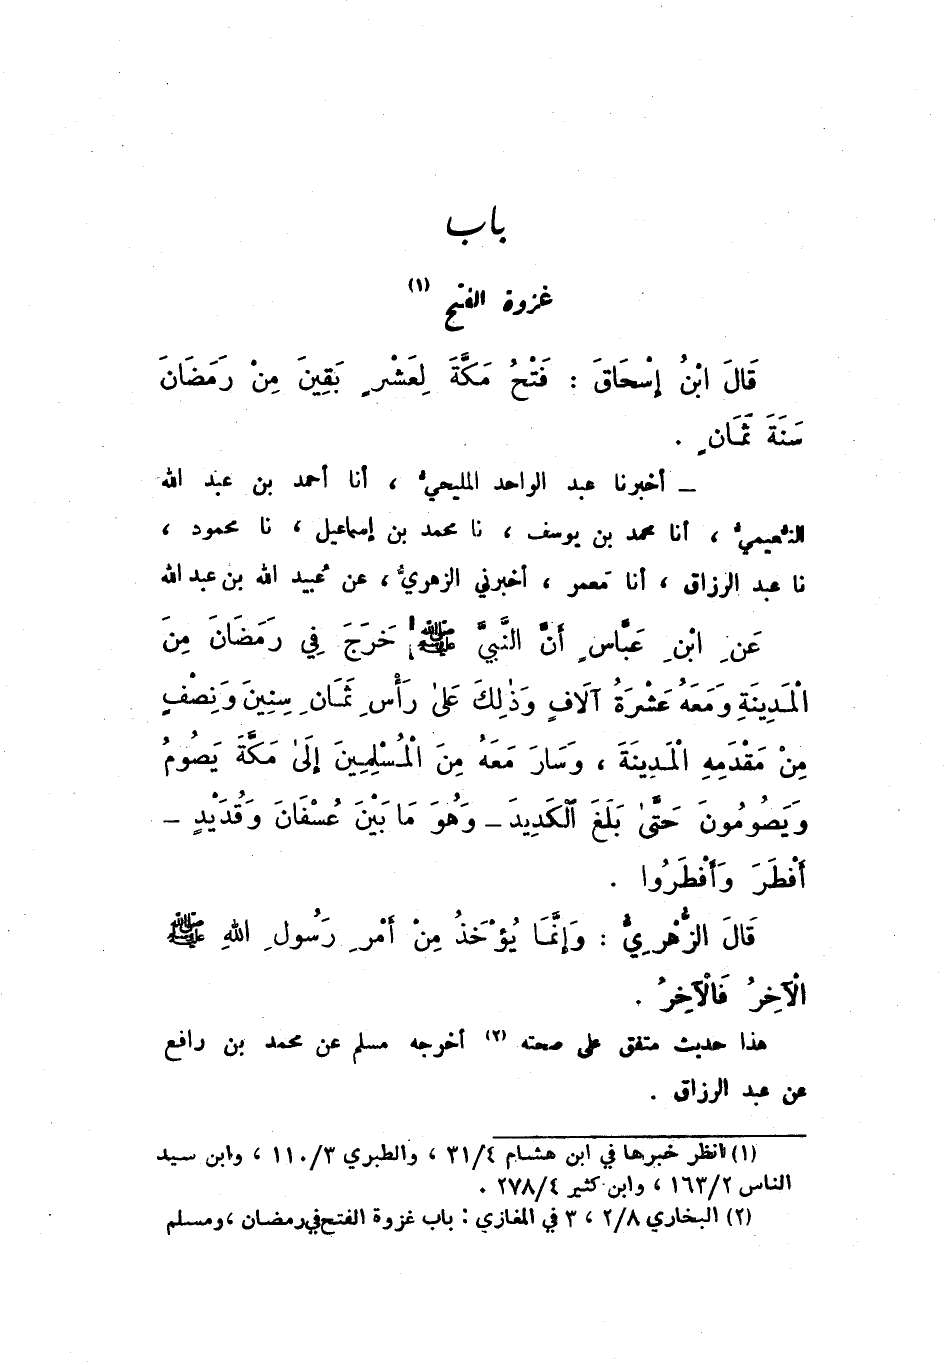 باب
غزوة الفتح (١)
قَالَ ابْنُ إِسْحَاقَ : فَتْحُ مَكَّةَ لِعَشْرٍ بَقِينَ مِنْ رَمَضَانَ
سَنَةَ ثَمَانٍ .
ــ أخبرنا عبد الواحد المليحيُّ ، أنا أحمد بن عبد الله
النُّعيميُّ ، أنا محمد بن يوسف ، نا محمد بن إسماعيل ، نا محمود ،
نا عبد الرزاق ، أنا مَعمر ، أخبرني الزهريُّ ، عن عُبيد الله بن عبد الله
عَنِ ابْنِ عَبَّاسٍ أَنَّ النَّبِيَّ ﷺ خَرَجَ فِي رَمَضَانَ مِنَ
الْمَدِينَةِ وَمَعَهُ عَشْرَةُ آلَافٍ وَذٰلِكَ عَلَىٰ رَأْسِ ثَمَانِ سِنِينَ وَنِصْفٍ
مِنْ مَقْدَمِهِ الْمَدِينَةَ ، وَسَارَ مَعَهُ مِنَ الْمُسْلِمِينَ إِلَىٰ مَكَّةَ يَصُومُ
وَيَصُومُونَ حَتَّىٰ بَلَغَ الْكَدِيدَ ــ وَهُوَ مَا بَيْنَ عُسْفَانَ وَقُدَيْدٍ ــ
أَفْطَرَ وَأَفْطَرُوا .
قَالَ الزُّهْرِيُّ : وَإِنَّمَا يُؤْخَذُ مِنْ أَمْرِ رَسُولِ اللهِ ﷺ
الْآخِرُ فَالْآخِرُ .
هذا حديث متفق على صحته (٢) أخرجه مسلم عن محمد بن رافع
عن عبد الرزاق .
(١) انظر خبرها في ابن هشام ٣١/٤ ، والطبري ١١٠/٣ ، وابن سيد
الناس ١٦٣/٢ ، وابن كثير ٢٧٨/٤ .
(٢) البخاري ٢/٨ ، ٣ في المغازي : باب غزوة الفتح في رمضان ، ومسلم